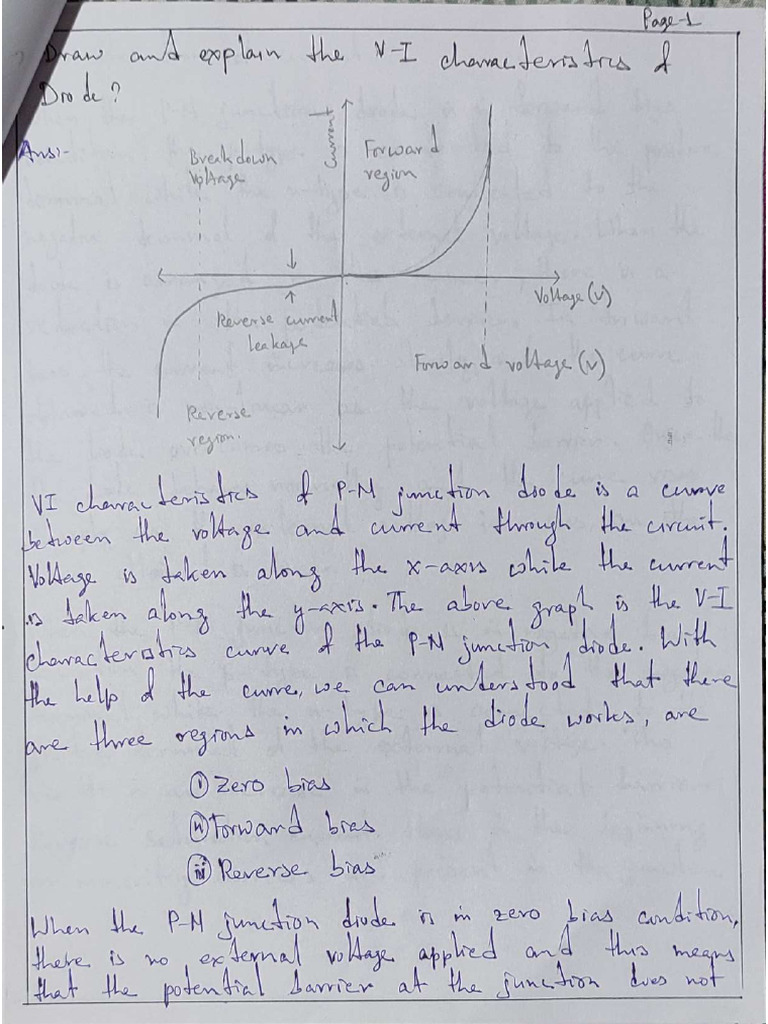 Page-1
Draw and explain the V-I characteristics of
Diode?
Ans:-
Current I
Forward
region
Breakdown
Voltage
Voltage (v)
Reverse current
leakage
Forward voltage (v)
Reverse
region.
VI characteristics of P-N junction diode is a curve
between the voltage and current through the circuit.
Voltage is taken along the x-axis while the current
is taken along the y-axis. The above graph is the V-I
characteristics curve of the P-N junction diode. With
the help of the curve, we can understood that there
are three regions in which the diode works, are
(i) Zero bias
(ii) Forward bias
(iii) Reverse bias
When the P-N junction diode is in zero bias condition,
there is no external voltage applied and this means
that the potential barrier at the junction does not